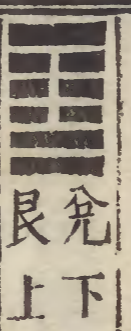 兌下
艮上